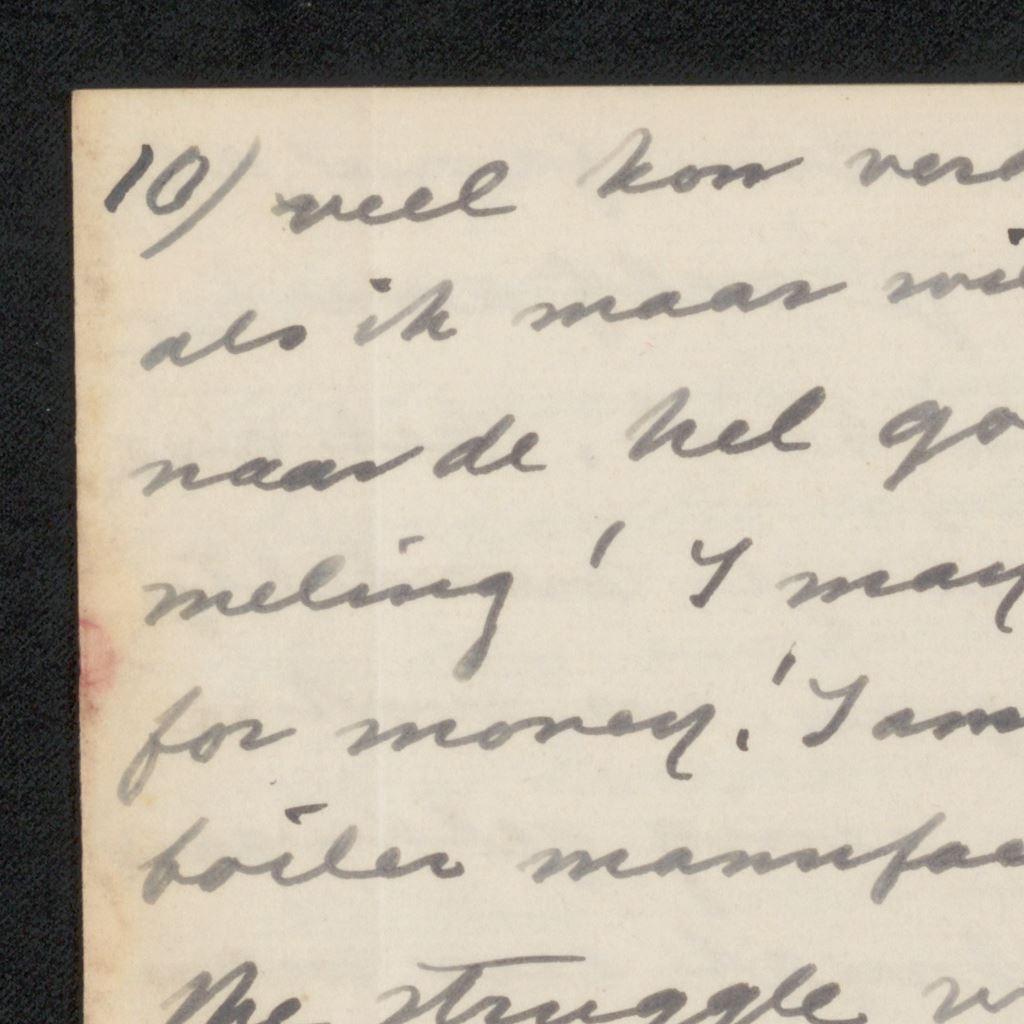 10) veel kon verd
als ik maar wil
naar de hel go
meling' I may
for money.' I am
boiler manufac
The struggle w